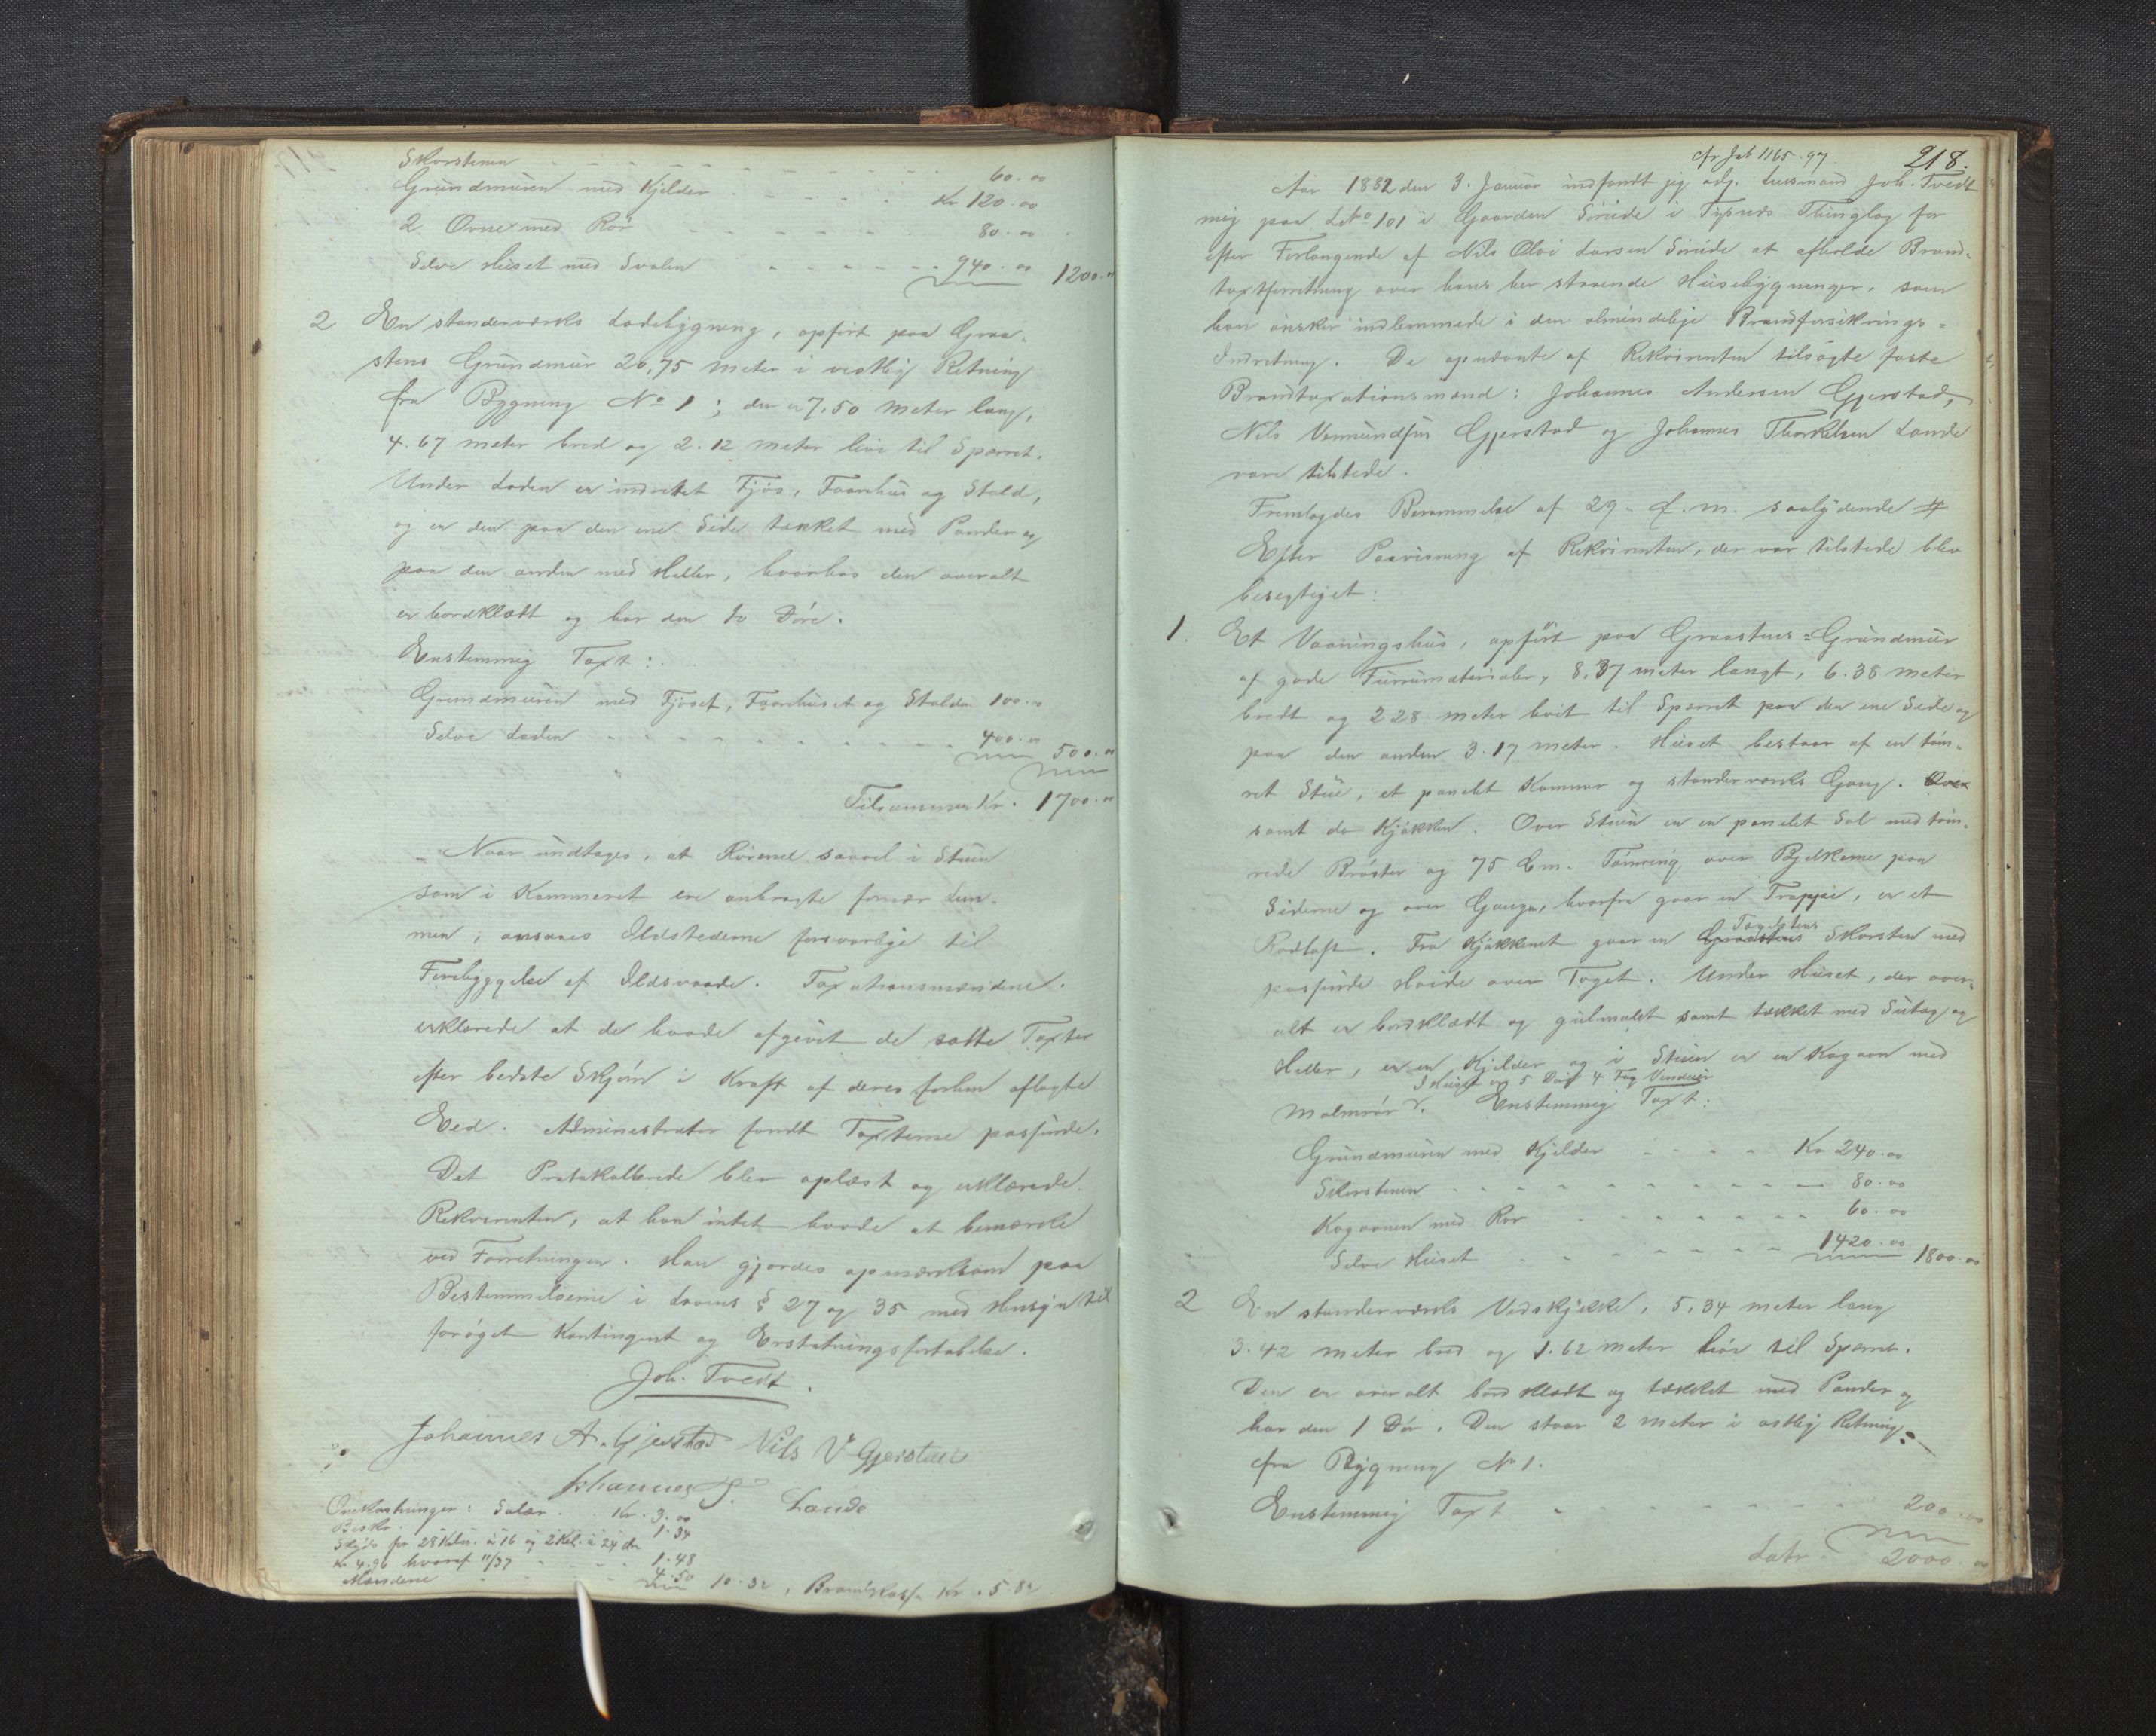 Skorstenen - - - - - - - 60.00
Grundmuren med Kjelder - - - - Kr 120.00
2 Ovne med Rör - - - - - 80.00
Selve Huset med Svalen - - - - 940.00 1200.00
2 En standerværks Ladebygning, opfört paa Graa-
stens Grundmur 20,75 meter i vestlig Retning
fra Bygning No 1; den er 7,50 meter lang,
4.67 meter bred og 2.12 meter höi til Sparret.
Under Laden er indrettet Fjös, Faarehus og Stald,
og er den paa den ene Side tækket med Pander og
paa den anden med Heller, hvorhos den overalt
er bordklædt og har den to Döre.
Enstemmig Taxt:
Grundmuren med Fjöset, Faarehuset og Stalden 100.00
Selve Laden - - - - - - - 400.00 500.00
Tilsammen Kr. 1700.00
Naar undtages, at Rörene saavel i Stuen
som i Kammeret ere anbragte for nær Lem-
men, ansaaes Ildstederne forsvarlige til
Forebyggelse af Ildsvaade. Taxationsmændene
erklærede at de havde afgivet de satte Taxter
efter bedste Skjön i Kraft af deres forhen aflagte
Eed. Administrator fandt Taxterne passende.
Det Protokollerede blev oplæst og erklærede
Rekvirenten, at han intet havde at bemærke
ved Forretningen. Han gjordes opmærksom paa
Bestemmelserne i Lovens § 27 og 35 med Hensyn til
foröget Kontingent og Erstatningsfortabelse.
Joh. Tvedt.
Johannes A. Gjerstad Nils V Gjerstad
Johannes T. Lande
Omkostninger: Salær . . Kr. 3.00
Beskr. 1.34
Skyds for 28 Kilm. à 16 og 2 Kil. à 24 Öre
Kr 4.96 hvoraf 11/37 - - - 1.48
Mændene - - - 4.50
10.32, Brandkass. Kr. 5.82
cfr Job 1165.97 218.
Aar 1882 den 3. Januar indfandt jeg adj. Lensmand Joh. Tvedt
mig paa LNo 101 i Gaarden Söreide i Tysnes Thinglag for
efter Forlangende af Nils Olai Larsen Söreide at afholde Brand-
taxtforretning over hans her staaende Husebygninger, som
han önsker indlemmede i den almindelige Brandforsikrings-
Indretning. De opnævnte af Rekvirenten tilsagte faste
Brandtaxationsmænd: Johannes Andersen Gjerstad,
Nils Vermundsen Gjerstad og Johannes Thorkelsen Lande
vare tilstede.
Fremlagdes Berammelse af 29 f.m. saalydende #
Efter Paavisning af Rekvirenten, der var tilstede blev
besigtiget:
1. Et Vaaningshus, opfört paa Graastens-Grundmur
af gode Furumaterialer, 8,37 meter langt, 6.38 meter
bredt og 2.28 meter höit til Sparret paa den ene Side og
paa den anden 3.17 meter. Huset bestaar af en töm-
ret Stue, et panelet Kammer og standerværks Gang. Over
samt do Kjökken. Over Stuen er en panelet Sal med töm-
rede Bröster og 75 Cm. Tömring over Bjelkerne paa
Siderne og over Gangen, hvorfra gaar en Trappe, er et
Rodloft. Fra Kjökkenet gaar en Graastens Tagelstens Skorsten med
passende Höide over Taget. Under Huset, der over-
alt er bordklædt og gulmalet samt tækket med Sutag og
Heller, er en Kjelder og i Stuen er en Kogovn med
I Huset er 5 Dör 4 Fag Vinduer
Malmrör. Enstemmig Taxt:
Grundmuren med Kjelder - - - - Kr 240.00
Skorstenen - - - - - - - 80.00
Kogovnen med Rör - - - - - 60.00
Selve Huset - - - - - 1420.00 1800.00
2 En standerværks Vedskjekke, 5,34 meter lang
3.42 meter bred og 1.62 meter höi til Sparret.
Den er overalt bordklædt og tækket med Pander og
har den 1 Dör. Den staar 2 meter i östlig Retning
fra Bygning No 1.
Enstemmig Taxt - - - - - - 200.00
Latr. 2000.00